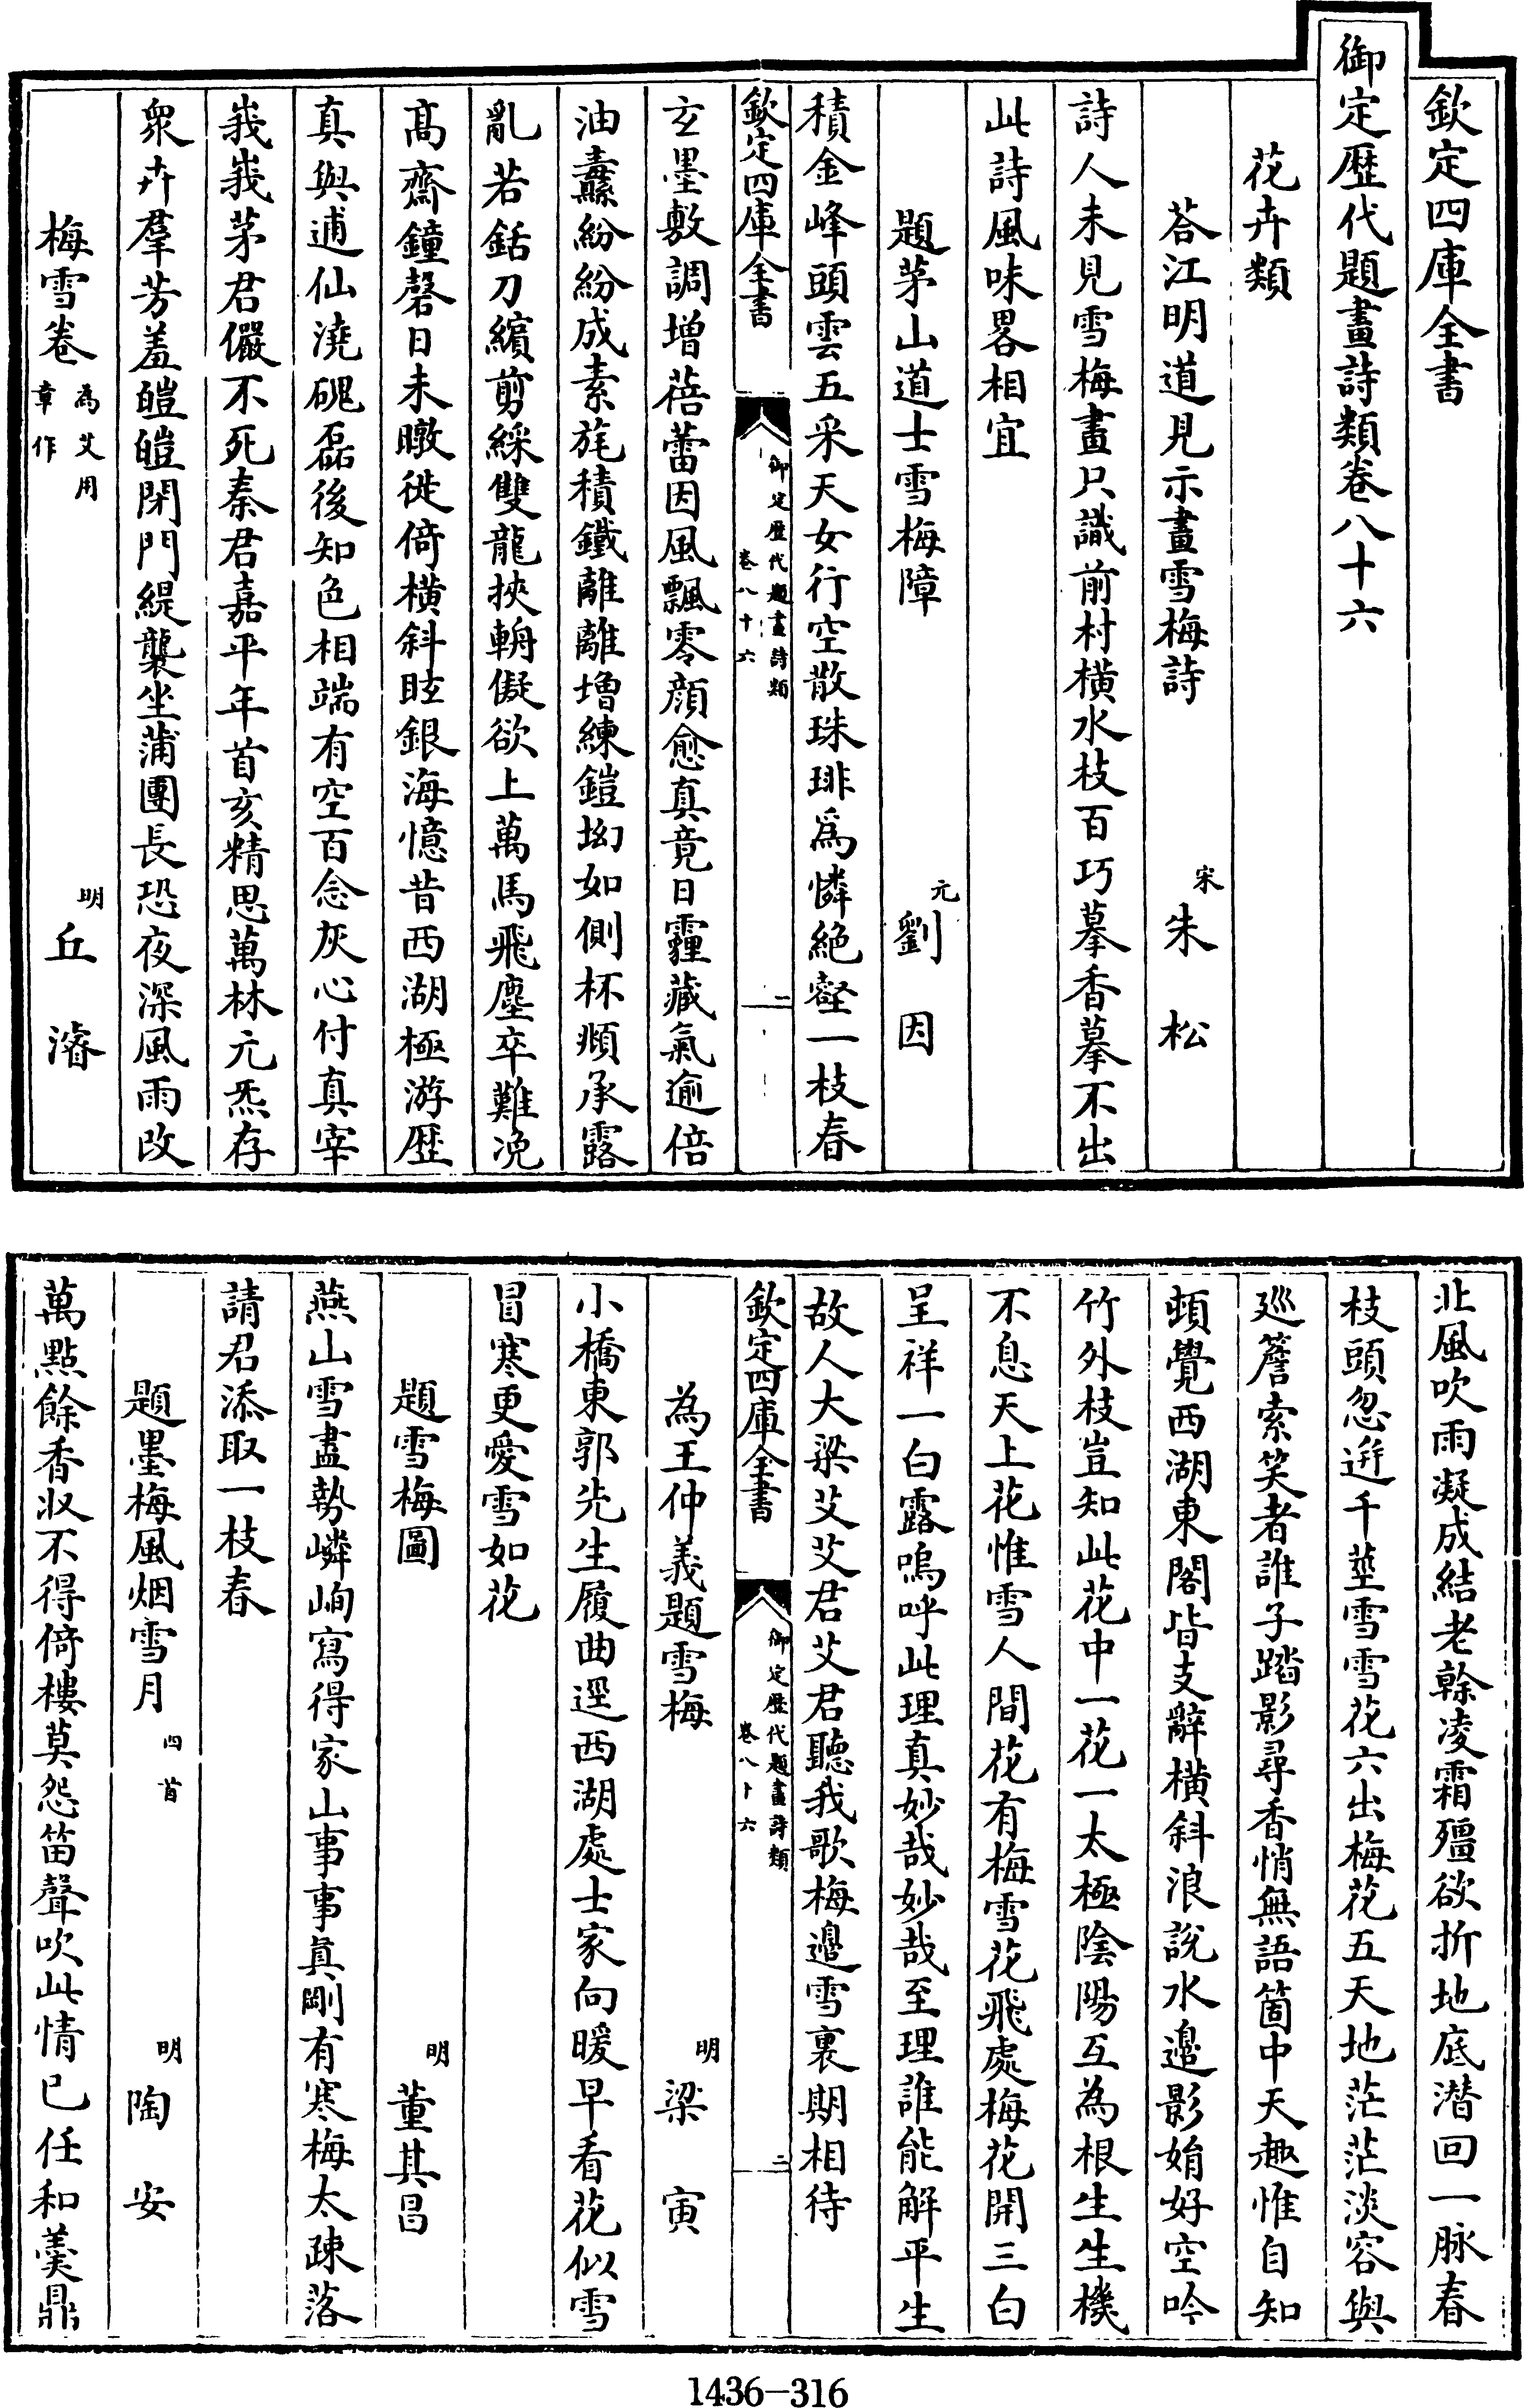 欽定四庫全書
御定歴代題畫詩類卷八十六
花卉類
荅江明道見示畫雪梅詩
宋
朱松
詩人未見雪梅畫只識前村横水枝百巧摹香摹不出
此詩風味畧相宜
題茅山道士雪梅障
元
劉因
積金峰頭雲五采天女行空散珠琲爲憐絶壑一枝春
欽定四庫全書
御定歴代題畫詩類
卷八十六
二
玄墨敷調增蓓蕾因風飄零顔愈真竟日霾藏氣逾倍
油纛紛紛成素旄積鐵離離増練鎧坳如側杯頫承露
亂若銛刀繽剪綵雙龍挾輈儗欲上萬馬飛塵卒難浼
髙齋鐘磬日未暾徙倚横斜眩銀海憶昔西湖極游歴
真與逋仙澆磈磊後知色相端有空百念灰心付真宰
峩峩茅君儼不死秦君嘉平年首亥精思萬林元炁存
衆卉羣芳羞皚皚閉門緹襲坐蒲團長恐夜深風雨改
梅雪巻
為艾用
章作
明
丘濬
北風吹雨凝成結老幹凌霜殭欲折地底潜回一脉春
枝頭忽逬千莖雪雪花六出梅花五天地茫茫淡容與
廵簷索笑者誰子踏影尋香悄無語箇中天趣惟自知
頓覺西湖東閣皆支辭横斜浪說水邉影娟好空吟
竹外枝豈知此花中一花一太極陰陽互為根生生機
不息天上花惟雪人間花有梅雪花飛處梅花開三白
呈祥一白露嗚呼此理真妙哉妙哉至理誰能解平生
故人大梁艾艾君艾君聽我歌梅邉雪裏期相待
欽定四庫全書
御定歴代題畫詩類
卷八十六
三
為王仲義題雪梅
明
梁寅
小橋東郭先生履曲逕西湖處士家向暖早看花似雪
冒寒更愛雪如花
題雪梅圖
明
董其昌
燕山雪盡勢嶙峋寫得家山事事真剛有寒梅太疎落
請君添取一枝春
題墨梅風烟雪月
四首
明
陶安
萬點餘香収不得倚樓莫怨笛聲吹此情已任和羮鼎
1436-316